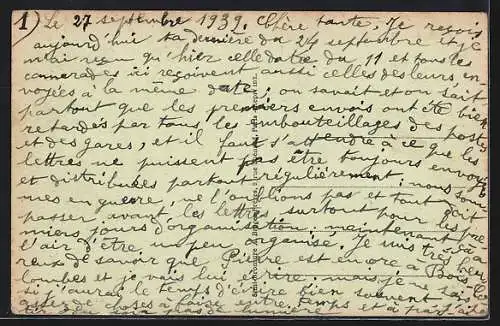 1) Le 27 septembre 1939. Chère tante, Je reçois
aujourd'hui ta dernière du 24 septembre et je
n'ai reçu qu'hier celle datée du 11 et tous les
camarades ici reçoivent aussi celles des leurs en-
voyées à la même date; on savait et on sait
partout que les premiers envois ont été bien
retardés par tous les embouteillages des postes
et des gares, et il faut s'attendre à ce que les
lettres ne puissent pas être toujours envoyées
et distribuées partout régulièrement; nous som-
mes en guerre, ne l'oublions pas et tout doit
passer avant les lettres, surtout pour les pre-
miers jours d'organisation; maintenant ça a
l'air d'être un peu organisé. Je suis très heu-
reux de savoir que Pierre est encore à
lombes et je vais lui écrire mais je ne sais
si j'aurai le temps d'écrire bien souvent
de choses à faire entre temps et à
pas de lumière